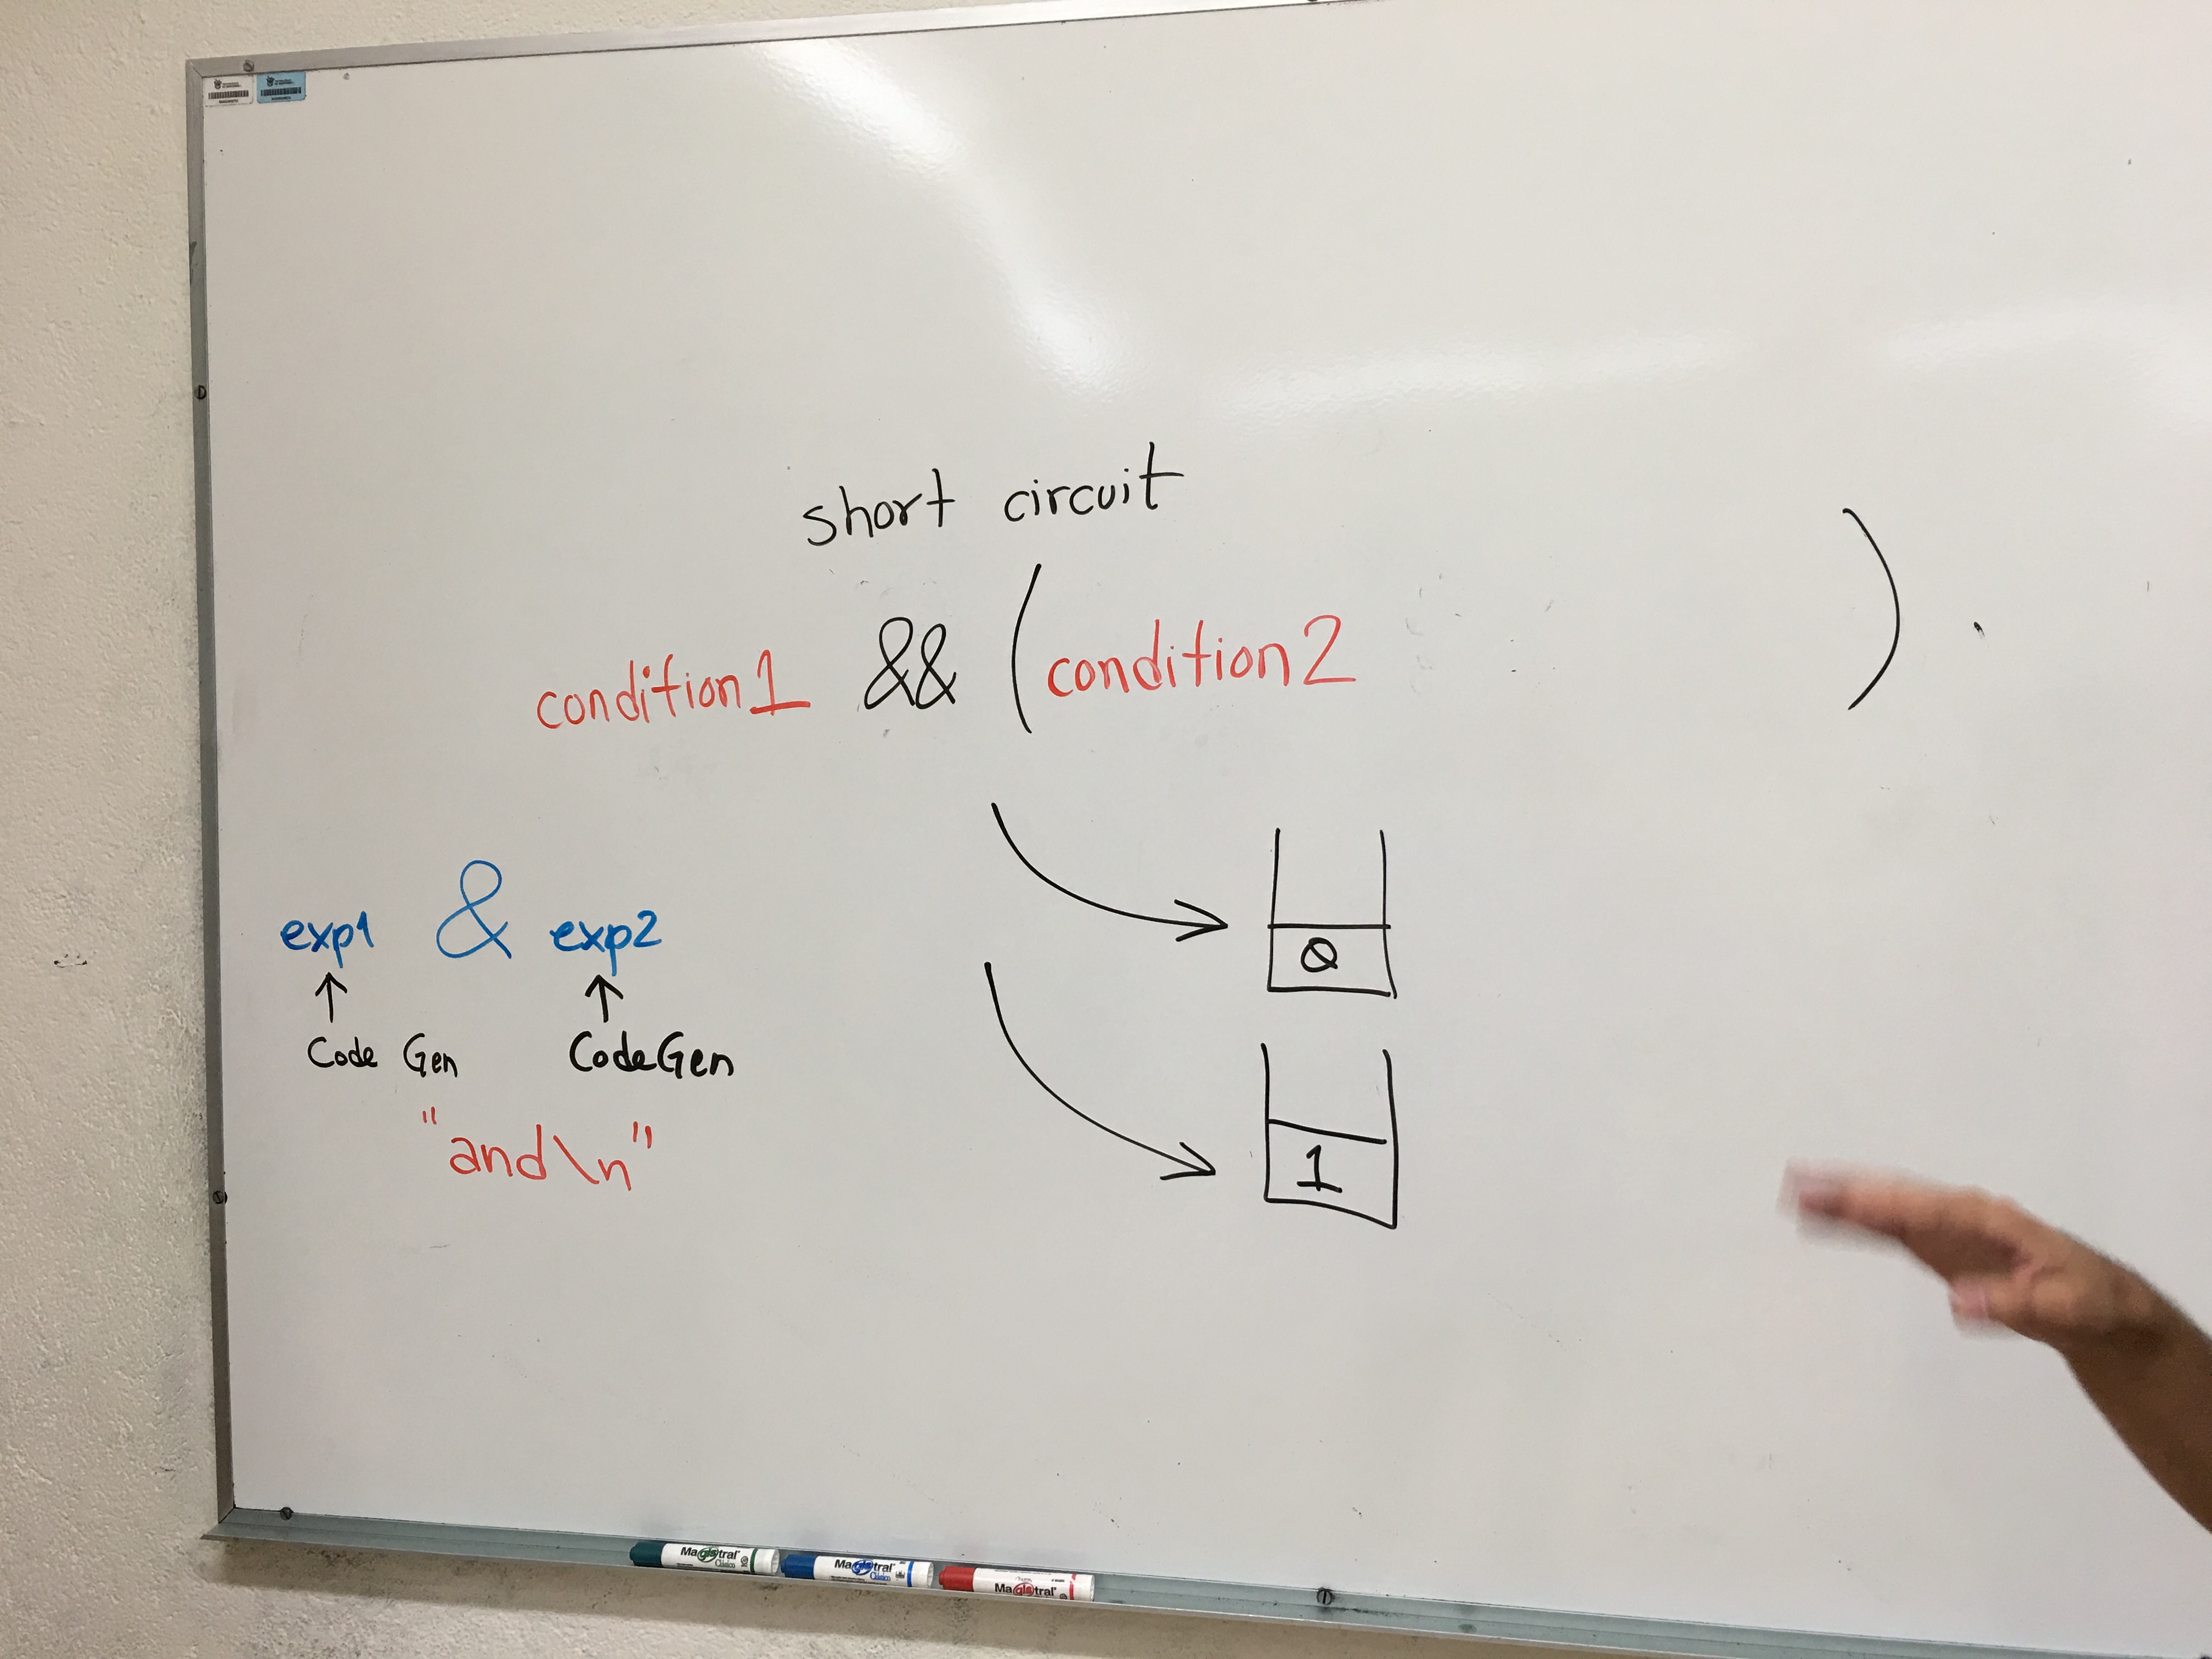 short circuit
condition1 && (condition2 )
exp1 & exp2
↑ ↑
Code Gen CodeGen
"and\n"
0
1
Magistral Clásico
Magistral Clásico
Magistral